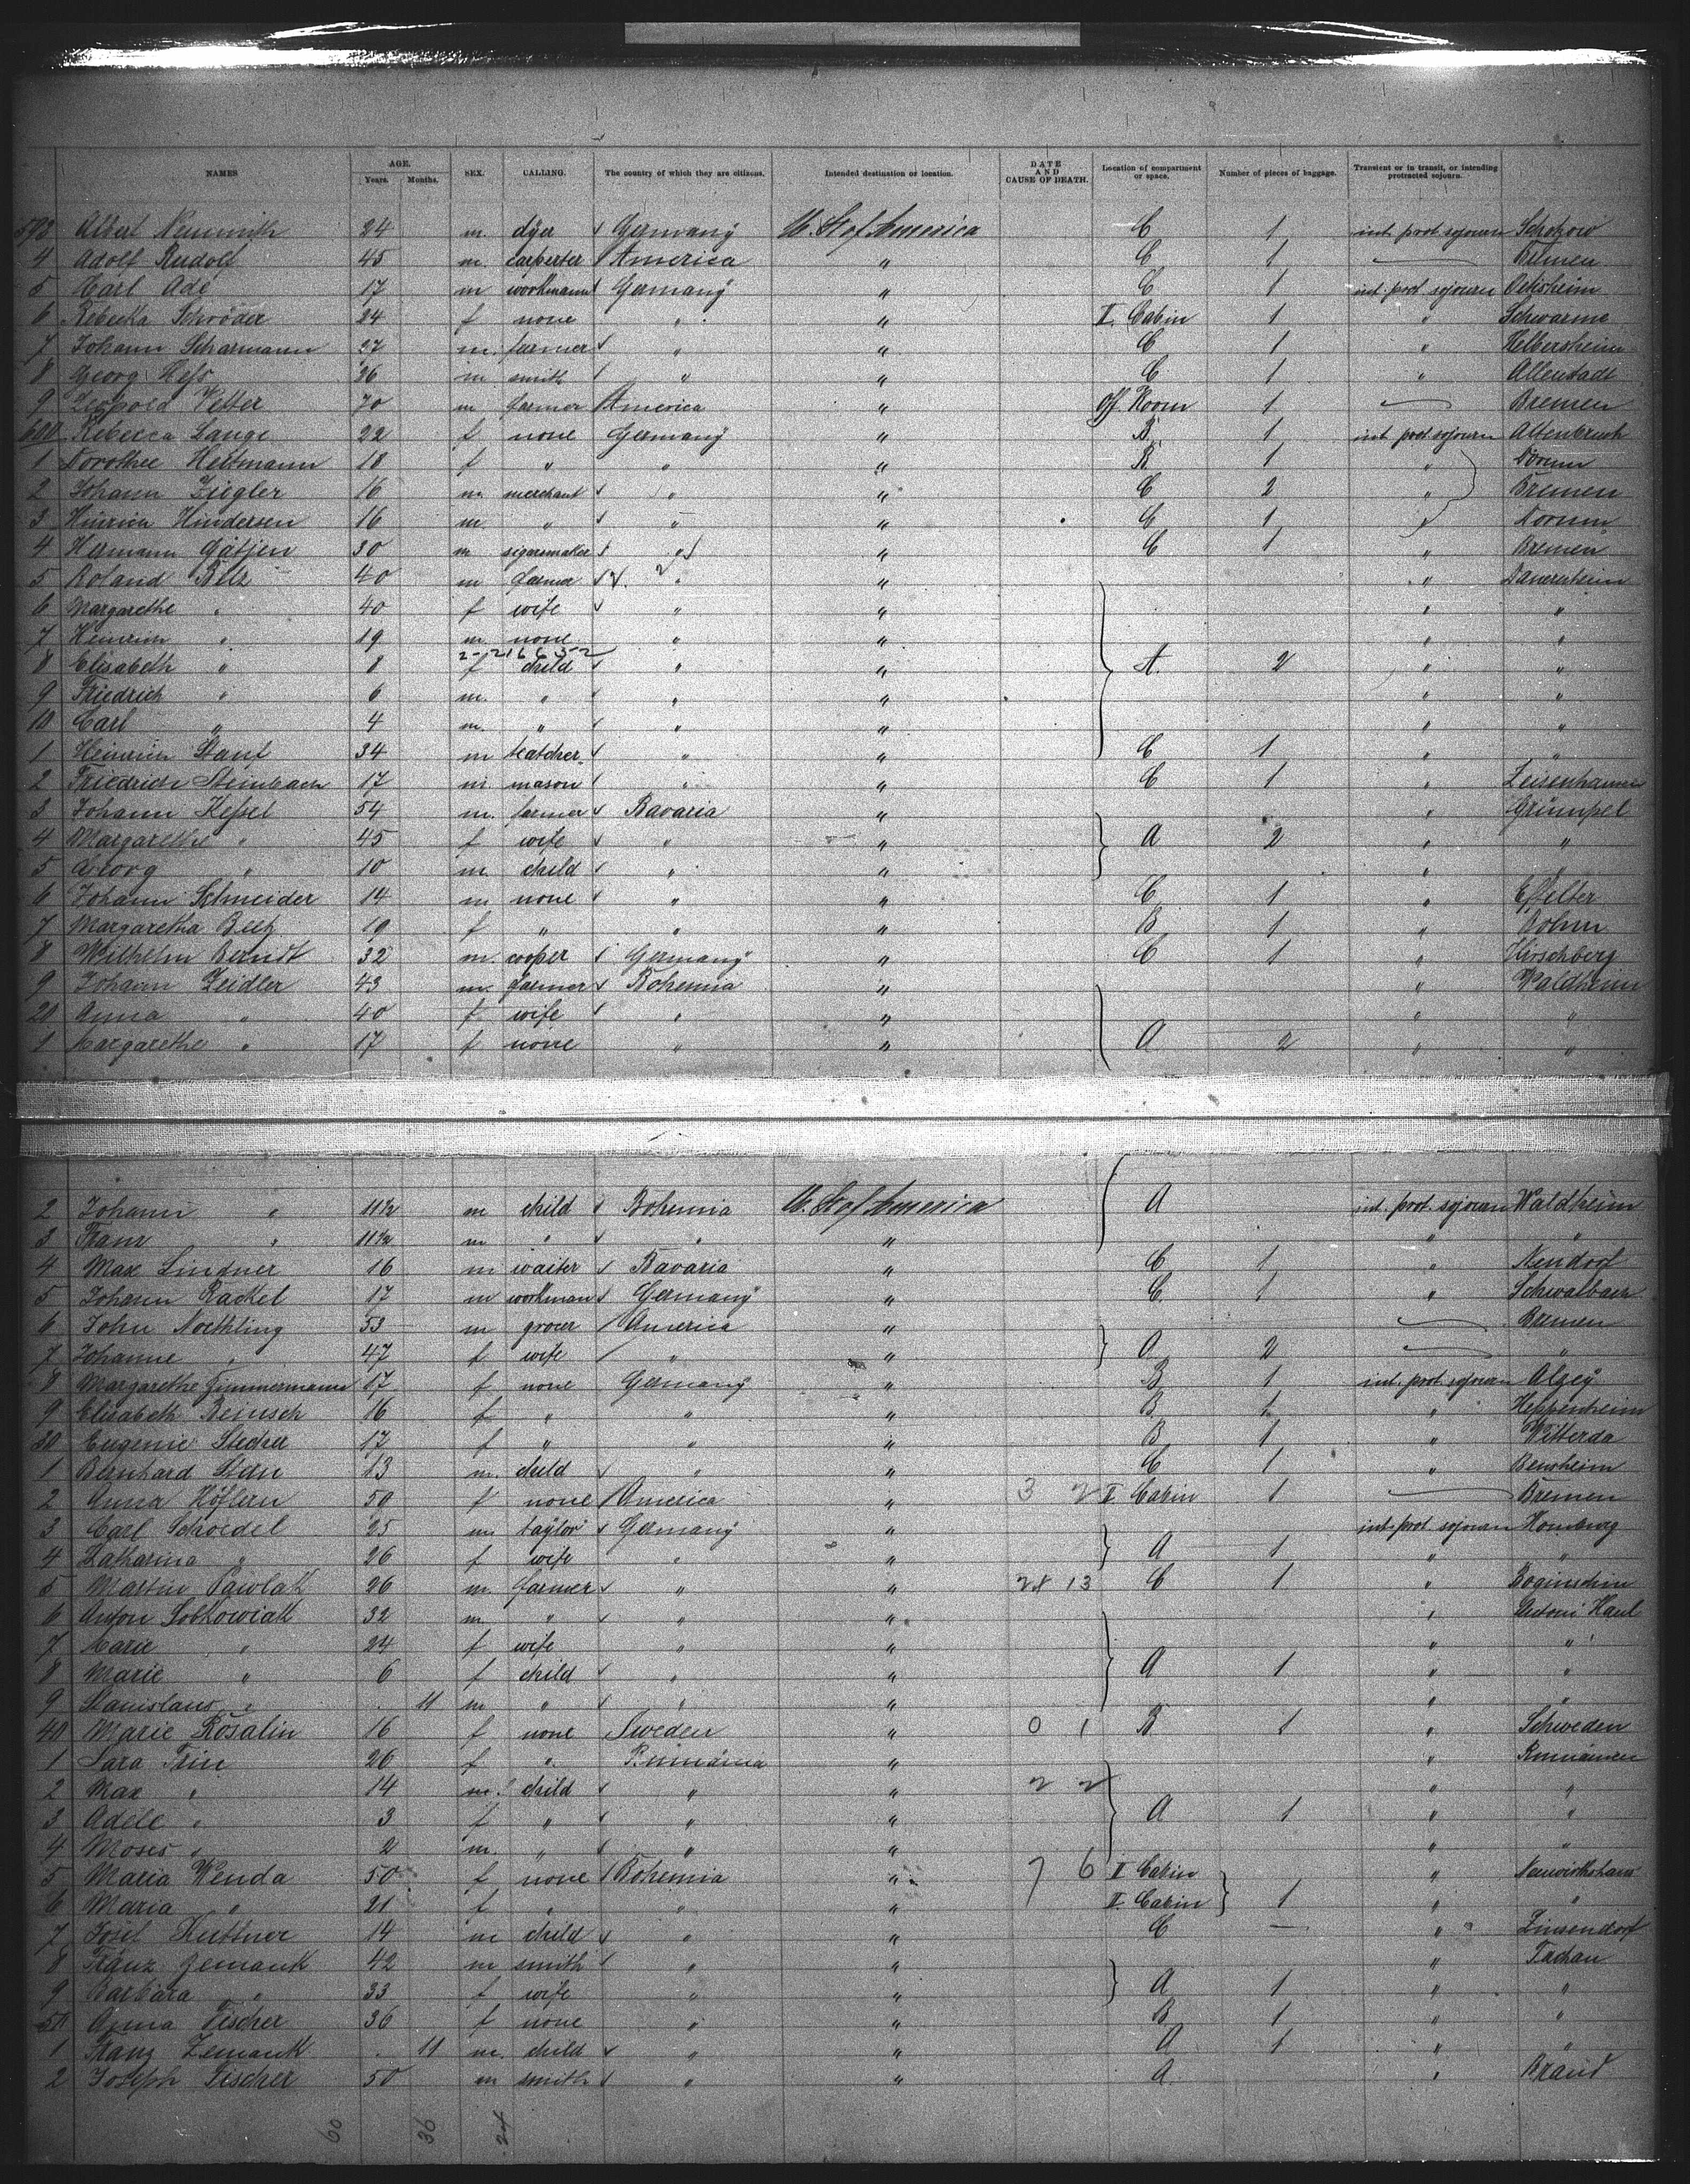 NAMES AGE. Years. Months. SEX. CALLING. The country of which they are citizens. Intended destination or location. DATE AND CAUSE OF DEATH. Location of compartment or space. Number of pieces of baggage. Transient or in transit, or intending protracted sojourn.
593 Albert 24 m. dyer Germany U. St of America C 1 int. prot. sojourn
4 Adolf Rudolf 45 m. carpenter America " C 1 Bremen
5 Carl Ade 17 m workmann Germany " C 1 int. prot sojourn
6 Rebecka Schröder 24 f none " " II. Cabin 1 " Schwarme
7 Johann Scharmann m. farmer " " C 1 "
8 Georg Hess 26 m smith " " C 1 " Altenstadt
9 Leopold Vetter 70 m farmer America " Off. Room 1 Bremen
600 Rebecca Lange 22 f none Germany " B. 1 int prot sojourn Altenbruch
1 Dorothee Heitmann 18 f " " " B. 1 " Dorum
2 Johann Ziegler 16 m merchant " " C 2 " Bremen
3 Hinrich Hindersen 16 m " " " C 1 " Dorum
4 Hermann Gätjen 30 m sigarsmaker " " C 1 " Bremen
5 Roland 40 m farmer " " " Dauernheim
6 Margarethe " 40 f wife " " " "
7 Heinrich " 19 m. none " " " "
2-216652
8 Elisabeth " 8 f child " " A. 2 " "
9 Friedrich " 6 m. " " " " "
10 Carl " 4 m. " " " " "
1 Heinrich 34 m teatcher " " C 1 " "
2 Friedrich Steinbach 17 m mason " " C 1 "
3 Johann Kessel 54 m. farmer Bavaria " " Grümpel
4 Margarethe " 45 f wife " " A 2 " "
5 Georg " 10 m. child " " " "
6 Johann Schneider 14 m none " " C 1 " Effelter
7 Margaretha 19 f " " " B 1 "
8 Wilhelm Berndt 32 m. cooper Germany " C 1 " Hirschberg
9 Johann Zeidler 43 m. farmer Bohemia " " Waldheim
20 Anna " 40 f wife " " " "
1 Margarethe " 17 f none " " A 2 " "
2 Johann " 11½ m child Bohemia U. St of America A int. prot. sojourn Waldheim
3 Franz " 11½ m " " " " "
4 Max Lindner 16 m waiter Bavaria " C 1 "
5 Johann Rackel 17 m workman Germany " C. 1 " Schwalbach
6 John Noethling 53 m grocer America " Bremen
7 Johanne " 47 f wife " " A 2 "
8 Margarethe Zimmermann 17 f none Germany " B 1 int. prot. sojourn Alzey
9 Elisabeth Beinsch 16 f " " " B 1 " Heppenheim
30 Eugenie Stecher 17 f " " " B 1 " Witterda
1 Bernhard Stern 13 m. child " " C 1 " Bensheim
2 Anna Höflern 50 f none America " 3 2 II Cabin 1 Bremen
3 Carl Schoedel 25 m taylor Germany " int. prot sojourn Homburg
4 Katharina " 26 f wife " " A 1 " "
5 Martin Pawlak 26 m. farmer " " 13 C 1 "
6 Anton Sobkowiak 32 m " " " "
7 Marie " 24 f wife " " " "
8 Marie " 6 f child " " A 1 " "
9 Stanislaus " 11 m " " " " "
40 Marie Rosalin 16 f none Sweden " 0 1 B 1 " Schweden
1 Sara 26 f " Rumänia " " Rumänien
2 Max " 14 m. child " " 2 2 " "
3 Adele " 3 f " " " A 1 " "
4 Moses " 2 m. " " " " "
5 Maria Wenda 50 f none Bohemia " 7 6 II Cabin "
6 Maria " 21 f " " " II. Cabin 1 " "
7 Josef Kuttner 14 m child " " C — " Zinsendorf
8 Franz Zemank 42 m smith " " " Tachau
9 Barbara " 33 f wife " " A 1 " "
50 Anna Fischer 36 f none " " B 1 " "
1 Franz Zemank 11 m. child " " A 1 " "
2 Joseph Fischer 50 m smith " " A. " Brand
60 36 24